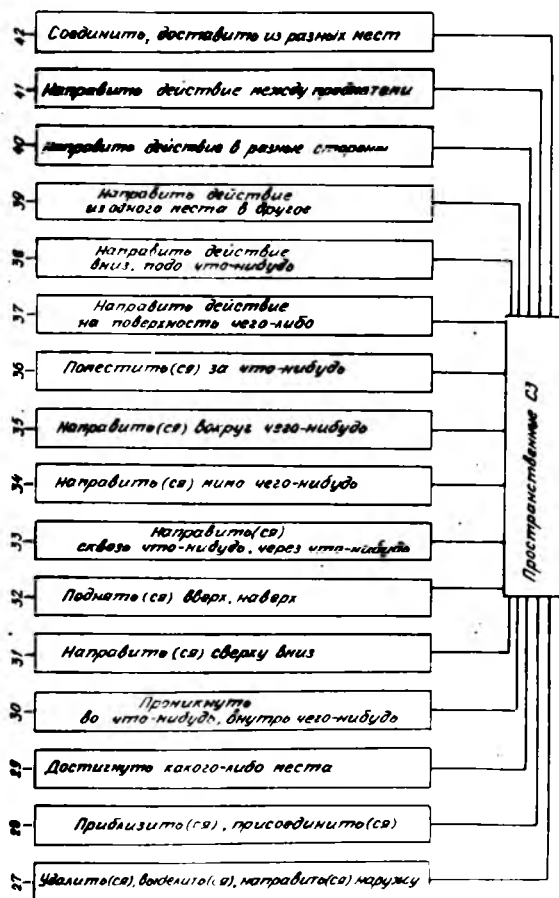 42 Соединить, доставить из разных мест
41 Направить действие между предметами
40 Направить действие в разные стороны
39 Направить действие
из одного места в другое
38 Направить действие
вниз, подо что-нибудь
37 Направить действие
на поверхность чего-либо
36 Поместить(ся) за что-нибудь
35 Направить(ся) вокруг чего-нибудь
34 Направить(ся) мимо чего-нибудь
33 Направить(ся)
сквозь что-нибудь, через что-нибудь
32 Поднять(ся) вверх, наверх
31 Направить(ся) сверху вниз
30 Проникнуть
во что-нибудь, внутрь чего-нибудь
29 Достигнуть какого-либо места
28 Приблизить(ся), присоединить(ся)
27 Удалить(ся), выделить(ся), направить(ся) наружу
Пространственные СЗ